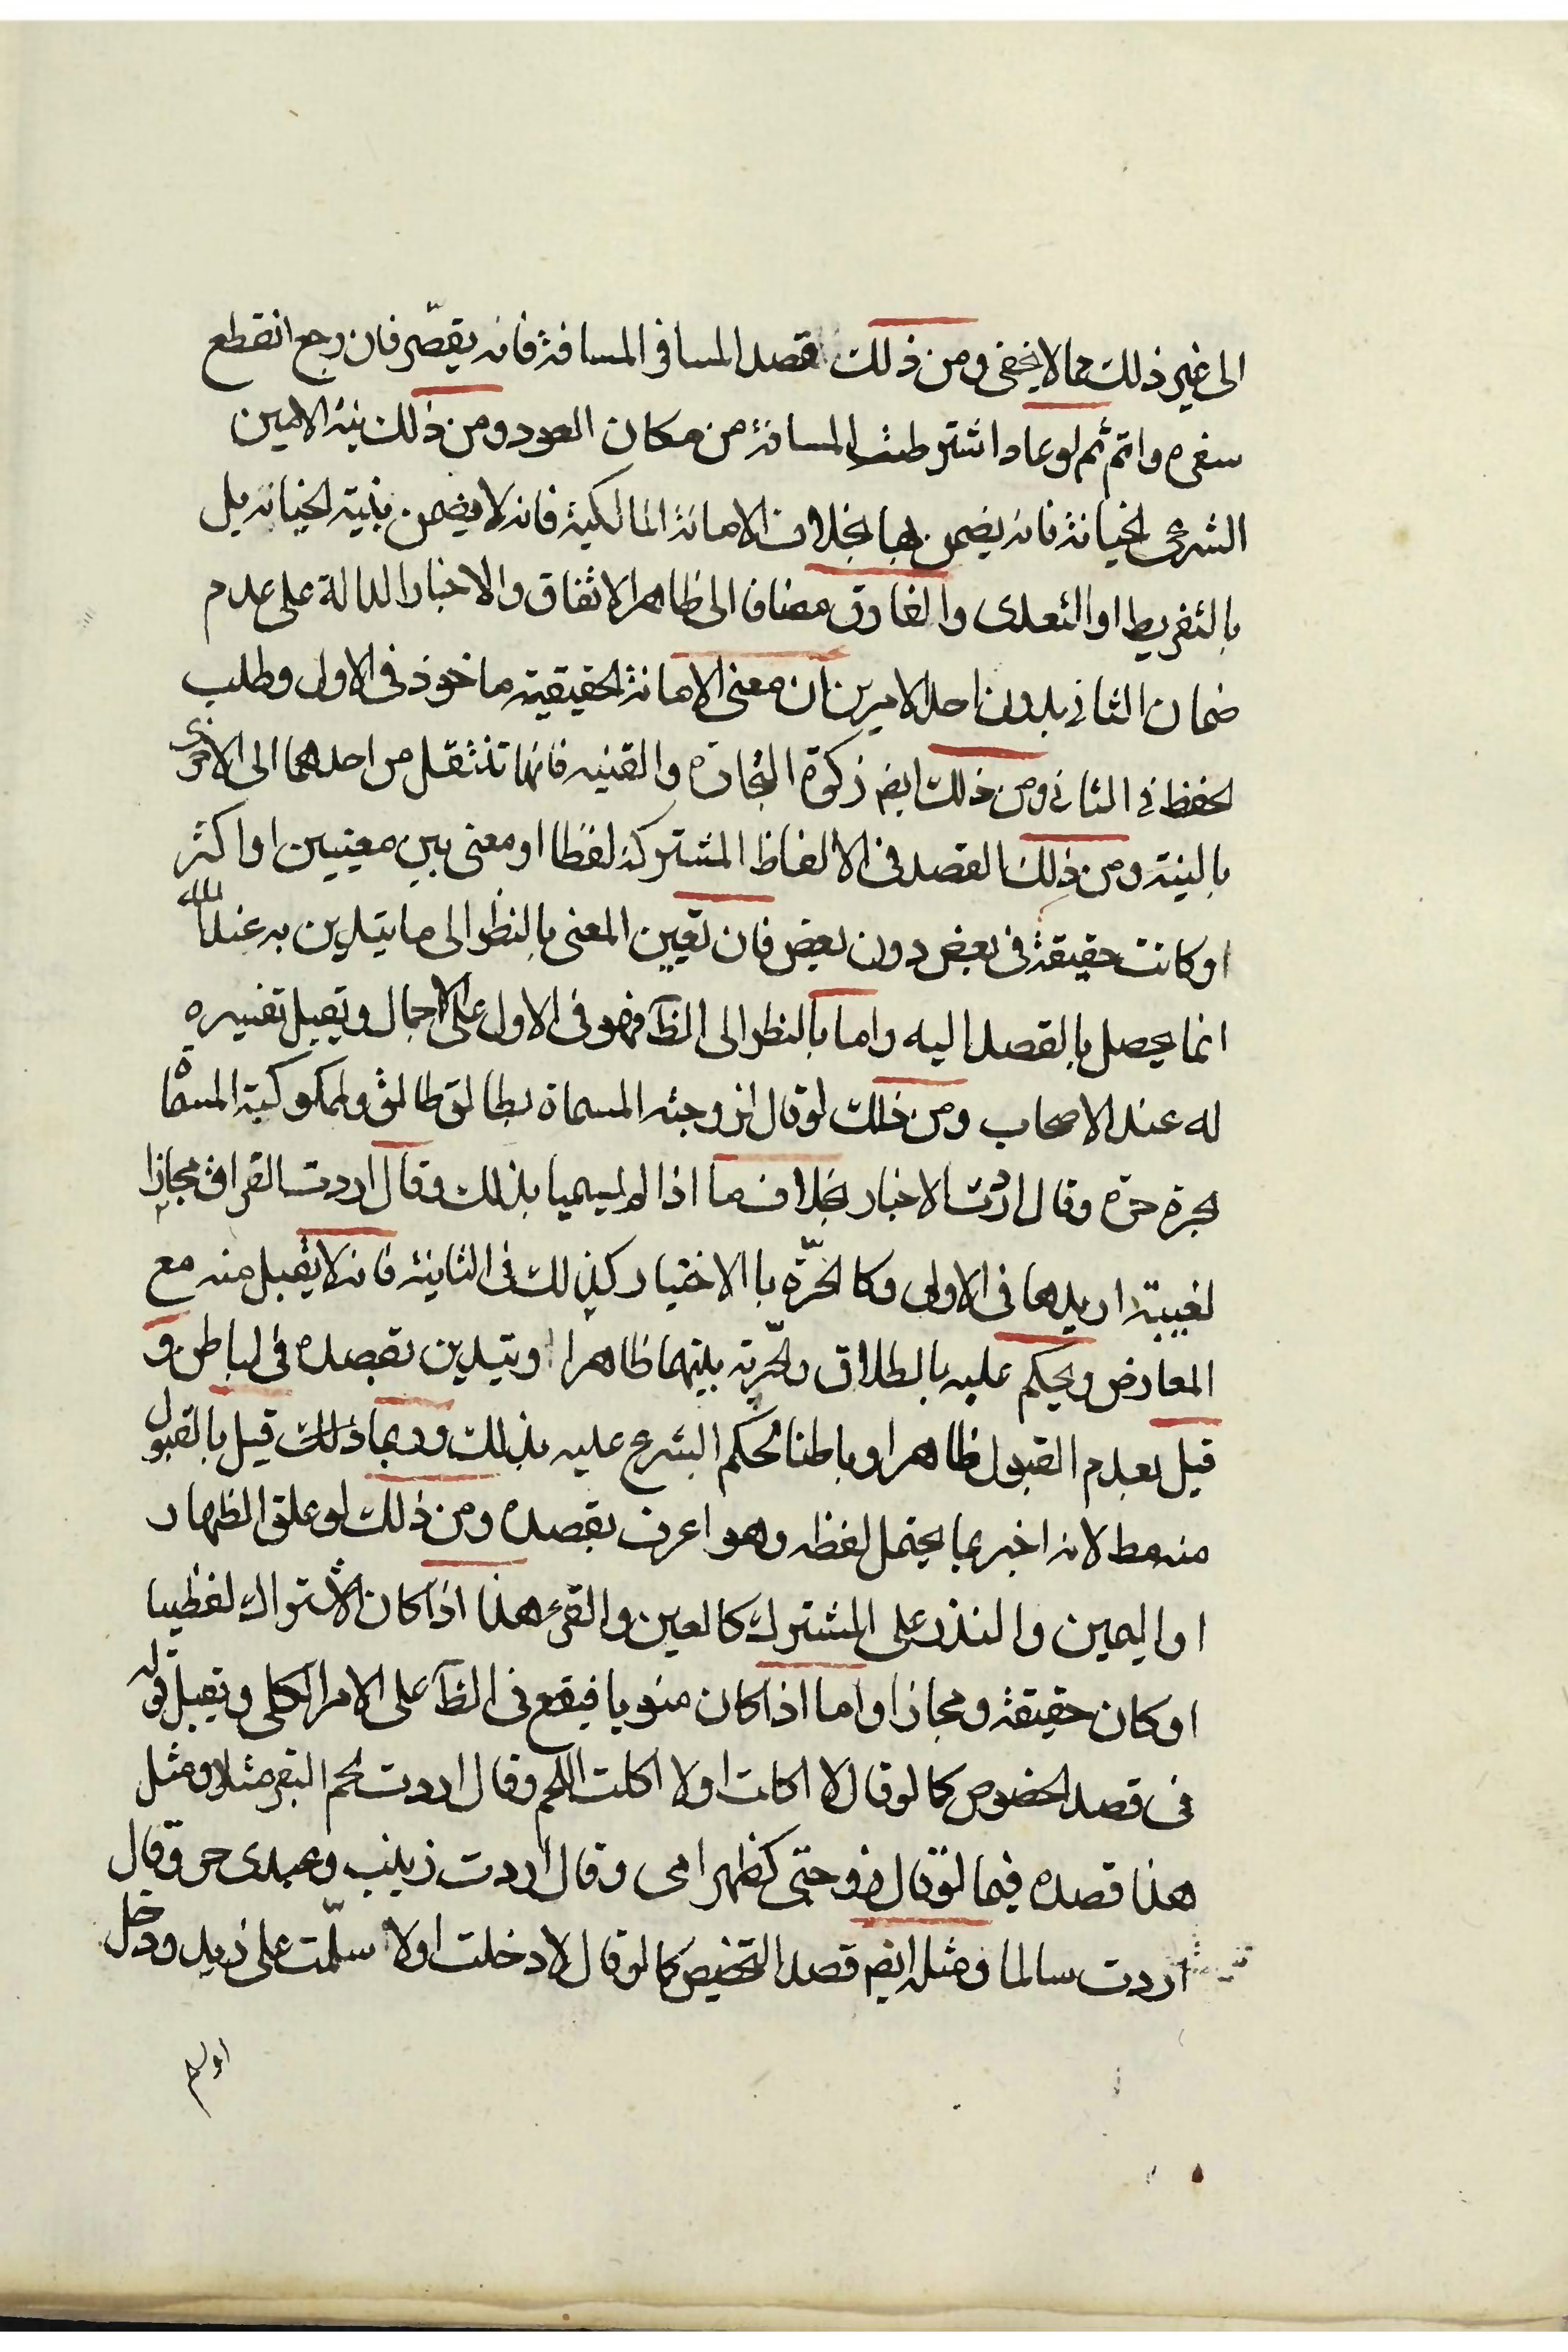 الى غير ذلك مما لا يخفى ومن ذلك قصد المسافر المسافة فانه يقصّر فان رجع انقطع
سفره واتم ثم لو عاد اشترطت المسافة من مكان العود ومن ذلك نية الامين
الشرعى الخيانة فانه يضمن بها بخلاف الامانة المالكية فانه لا يضمن بنية الخيانة بل
بالتفريط او التعدى والفارق مضافا الى ظاهر الاتفاق والاخبار الدالة على عدم
ضمان الثانى بدون احد الامرين ان معنى الامانة الحقيقية ماخوذ فى الاول وطلب
الحفظ فى الثانى ومن ذلك ايضم زكوة التجارة والقنيه فانها تنتقل من احدهما الى الاخرى
بالنية ومن ذلك القصد فى الالفاظ المشتركة لفظا او معنى بين معنيين او اكثر
او كانت حقيقة فى بعض دون بعض فان تعيين المعنى بالنظر الى ما يتدين به عند الله
انما يحصل بالقصد اليه واما بالنظر الى الظآ فهو فى الاول على الاجمال ويقبل تفسيره
له عند الاصحاب ومن ذلك لو قال لزوجته المسماة بطالق طالق ولمملوكته المسماة
بحرة حرة وقال اردت الاخبار بخلاف ما اذا لم يسميا بذلك وقال اردت الفراق مجازا
لغيبة اريدها فى الاولى وكالحرّة با الاختيار كذلك فى الثانية فانه لا يقبل منه مع
المعارض ويحكم عليه بالطلاق والحرّية بينهما ظاهرا ويتدين بقصده فى الباطن و
قيل بعدم القبول ظاهرا وباطنا لحكم الشرع عليه بذلك وربما ذلك قيل بالقبول
منه مط لانه اخبر بما يحتمل لفظه وهو اعرف بقصده ومن ذلك لو علق الظهار
او اليمين والنذر على المشترك كالعين والقرء هذا اذا كان الاشتراك لفظيا
او كان حقيقة ومجازا واما اذا كان منويا فيقع فى الظآ على الامر الكلى ويقبل قوله
فى قصد الخصوص كما لو قال لا اكلت او لا اكلت اللحم وقال اردت لحم البقر مثلا ومثل
هذا قصده فيما لو قال زوجتى كظهر امى وقال اردت زينب وعبدى حر وقال
اردت سالما ومثله ايضم قصد التخصيص كما لو قال لا دخلت او لا سلّمت على زيد ودخل
او لم